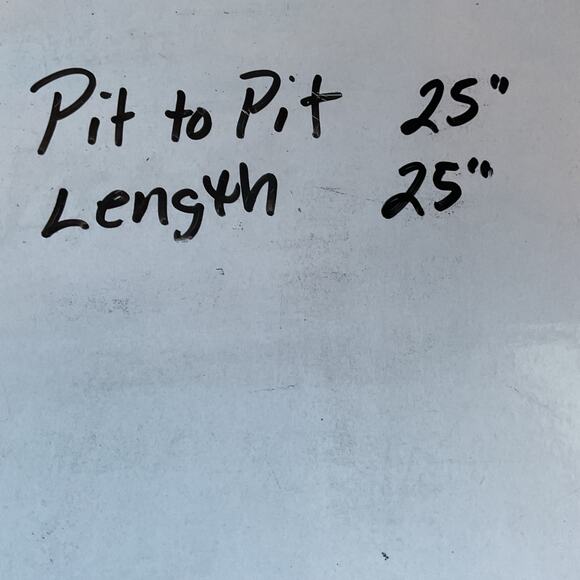 Pit to Pit 25"
Length 25"